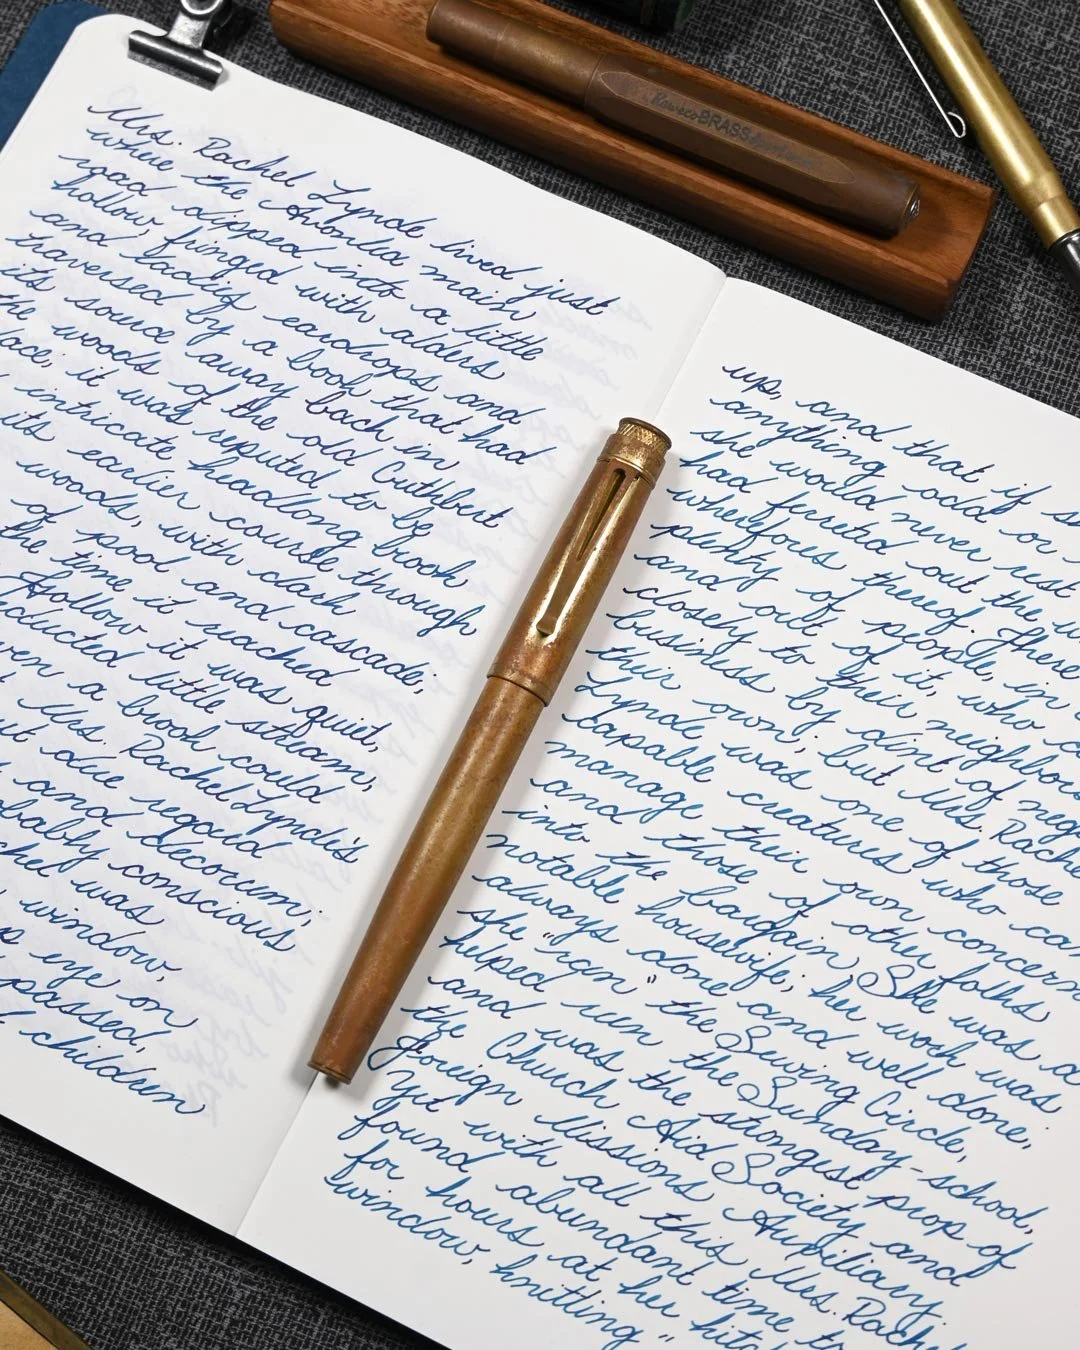 KawecoBRASSSport
Mrs. Rachel Lynde lived just
where the Avonlea main
road dipped into a little
hollow, fringed with alders
and ladies eardrops and
traversed by a brook that had
its source away back in
the woods of the old Cuthbert
lace; it was reputed to be
intricate headlong brook
its earlier course through
woods, with dark
of pool and cascade;
the time it reached
Hollow it was quiet,
nducted little stream,
ven a brook could
Mrs. Rachel Lynde's
ut due regard
and decorum;
obably conscious
chel was
window,
eye on
passed,
children
up, and that if s
anything odd or
she would never rest
had ferreted out the w
wherefores thereof. There
plenty of people, in
and out of it, who c
closely to their neighbou
business by dint of negl
their own; but Mrs. Rache
Lynde was one of those
capable creatures who can
manage their own concern
and those of other folks
into the bargain. She was a
notable housewife; her work was
always done and well done;
she "ran" the Sewing Circle,
helped run the Sunday-school,
and was the strongest prop of
the Church Aid Society and
Foreign Missions Auxiliary.
Yet with all this Mrs. Rachel
found abundant time to
for hours at her kitc
window, knitting "